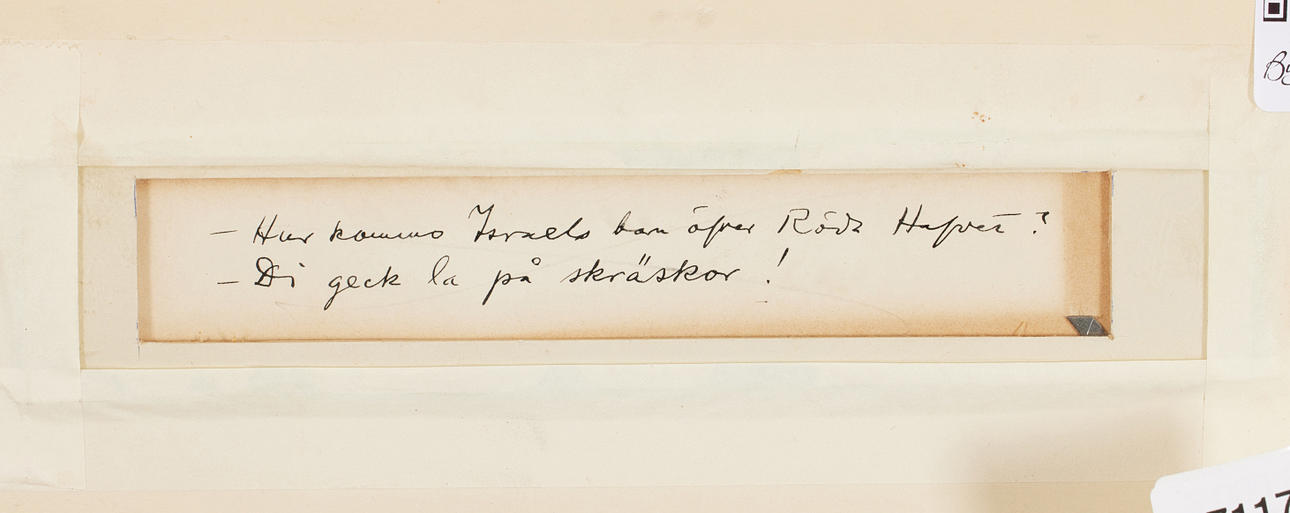 - Hur kommo Israels barn öfver Röda Hafvet?
- Di geck la på skräskor!
By
7117